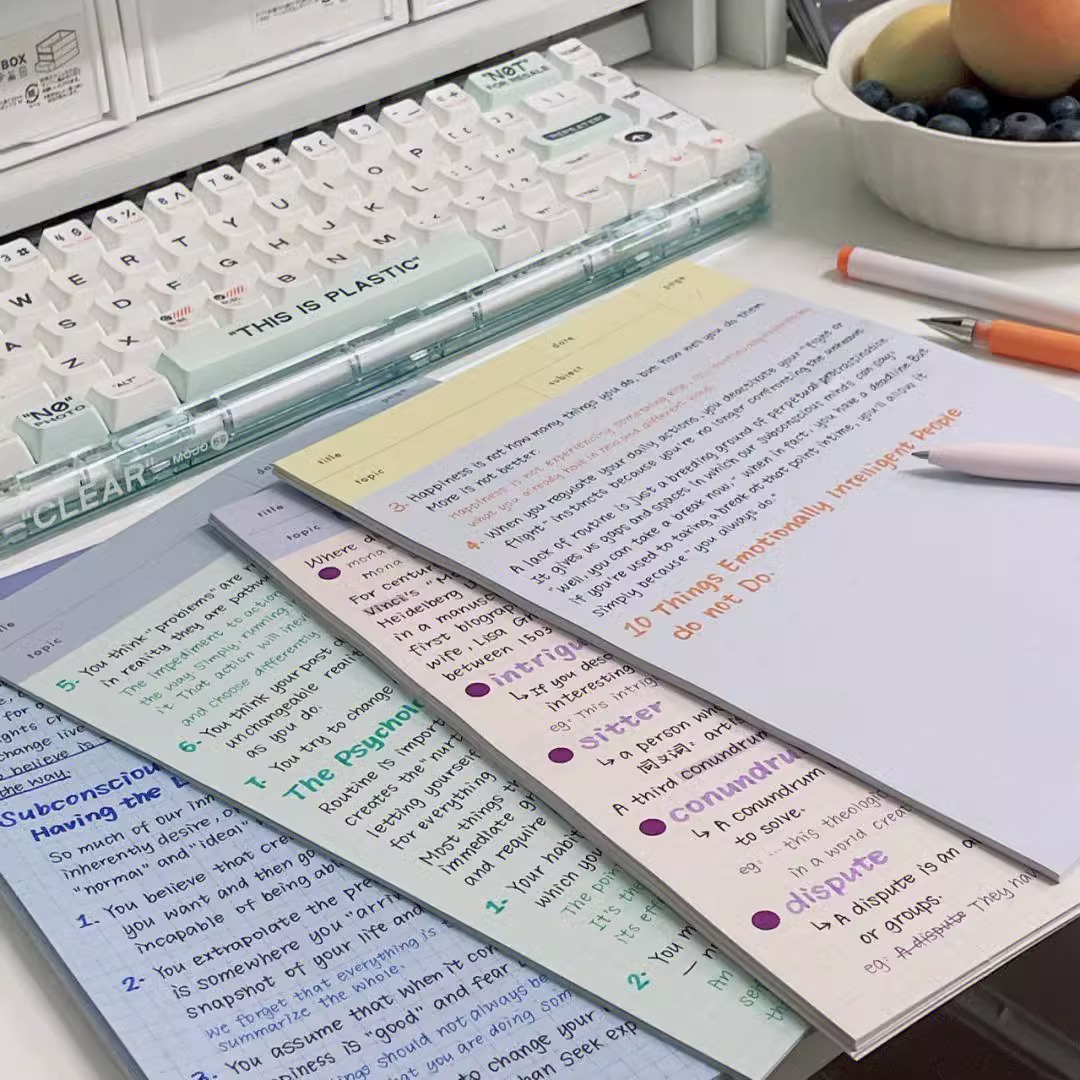 BOX
"NØT"
FOR RESALE
REPEATER
3 #
4 $
5 %
6 ^
7 &
8 *
9 (
0 )
W E R T Y U I O P
A S D F G H J K L
Z X B N M
"ALT"
"THIS IS PLASTIC"
"NØ"
PHOTO
"CLEAR"
MODD 68
page
date
subject
title
topic
3. Happiness is not how many things you do, but how well you do them
More is not better.
Happiness is not experiencing something else,
what you already have in new and different ways
4- When you regulate your daily actions, you deactivate your "fight or
flight" instincts because you're no longer confronting the unknown.
A lack of routine is just a breeding ground of perpetual procrastination
It gives us gaps and spaces in which our subconscious minds can say:
"well, you can take a break now," when in fact, you have a deadline. But
if you're used to taking a break at that point in time, you'll allow it
simply because "you always do."
10 Things Emotionally Intelligent People
do not Do.
title
topic
Where d
mona
mona
For centur
Vinci's "M
Heidelberg U
in a manus
first biograp
wife, Lisa Gh
between 1503
intrigu
↳ If you desc
interesting
eg: This intrig
sitter
↳ a person wh
同义词: artis
A third conundrum
conundru
↳ A conundrum
to solve.
eg: "... this theologi
in a world crea
dispute
↳ A dispute is an a
or groups.
eg: A dispute They hav
topic
5. You think "problems" are
in reality they are pathw
The impediment to action
the way. Simply, running
it That action will inev
and choose differently
6- You think your past d
unchangeable realit
as you do.
7. You try to change
The Psycholo
Routine is import
creates the "nurt
letting yourself
for everything
Most things th
immediate gr
and require
1- Your habit
which you
The poin
It's the
its eff
2- You m
the way.
Subconsciou
Having the L
So much of our inn
inherently desire, o
"normal" and "ideal"
1. You believe that cre
you want and then go
incapable of being abl
2- You extrapolate the pre
is somewhere you "arri
snapshot of your life and
we forget that everything is
summarize the whole.
3. You assume that when it com
ppiness is "good" and fear
things should not always be
that you are doing som
to change your
than Seek exp